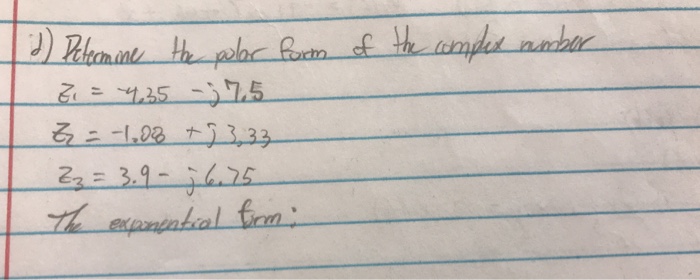 d) Determine the polar form of the complex number
Z₁ = -4.35 - j7.5
Z₂ = -1.08 + j3.33
Z₃ = 3.9 - j6.75
The exponential form: